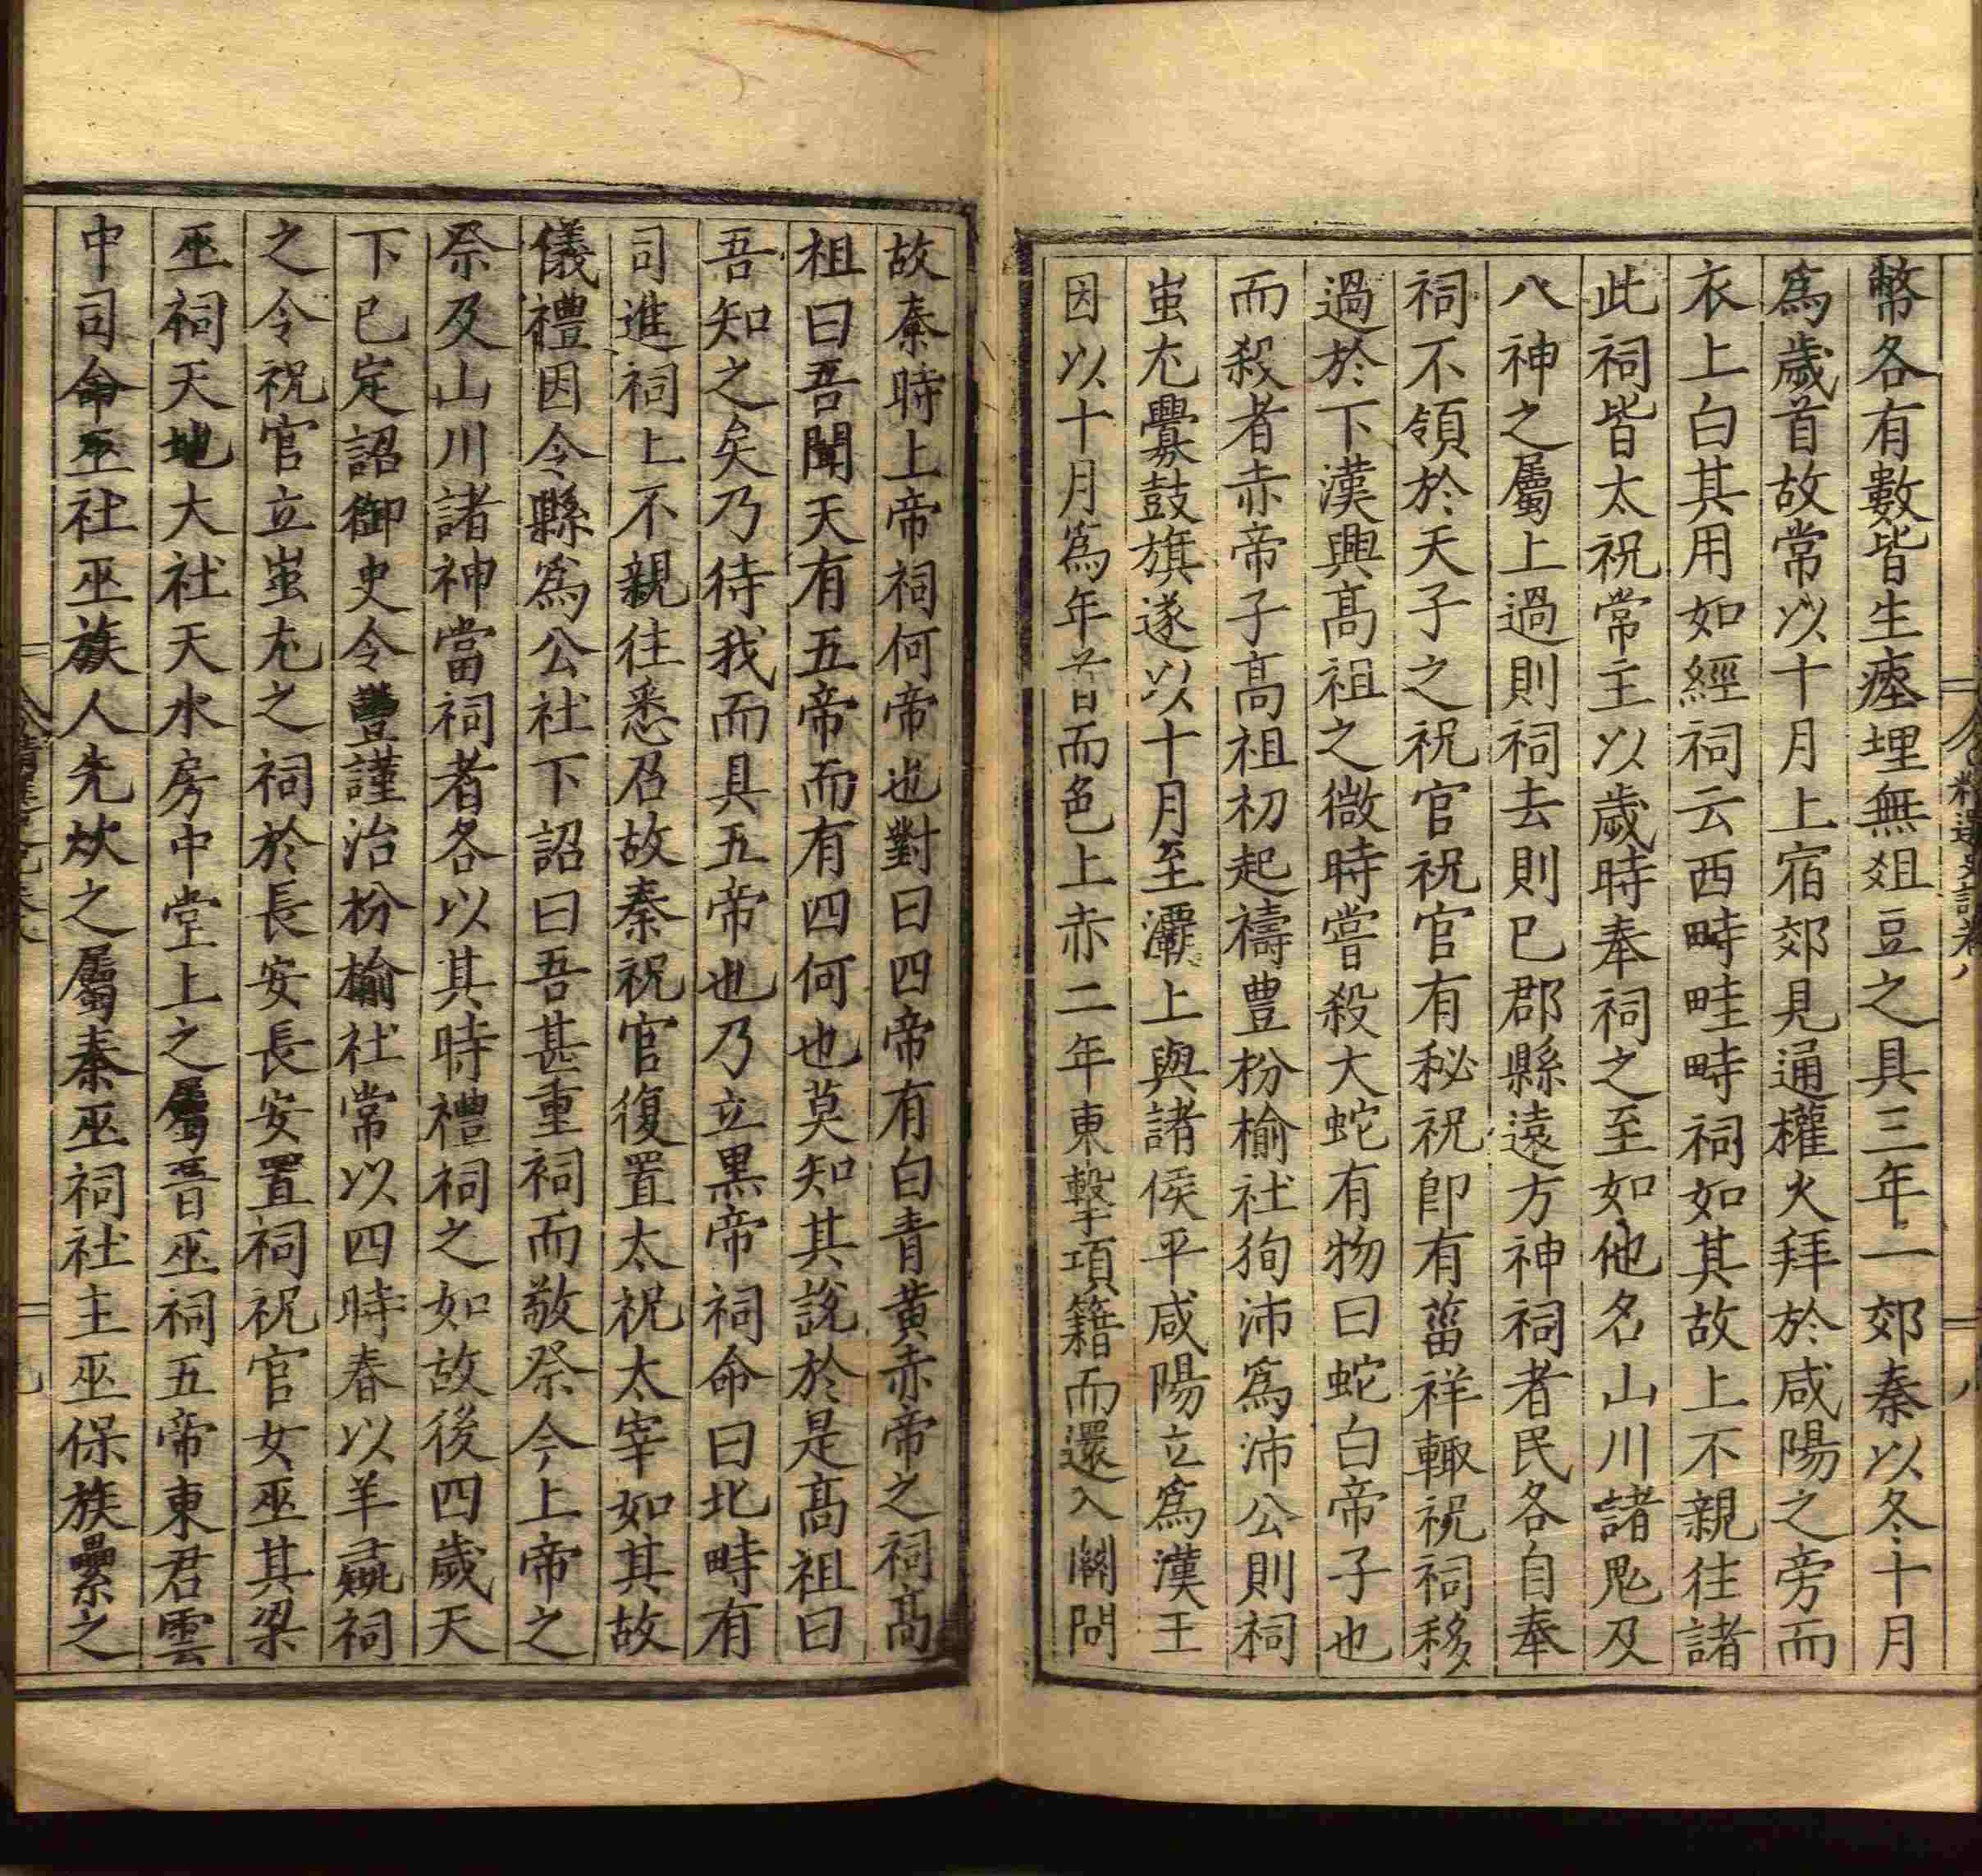 幣各有數皆生瘞埋無爼豆之具三年一郊秦以冬十月
爲歲首故常以十月上宿郊見通權火拜於咸陽之旁而
衣上白其用如經祠云西畤畦畤祠如其故上不親往諸
此祠皆太祝常主以歲時奉祠之至如他名山川諸鬼及
八神之屬上過則祠去則已郡縣遠方神祠者民各自奉
祠不領於天子之祝官祝官有秘祝卽有菑祥輙祝祠移
過於下漢興髙祖之微時嘗殺大蛇有物曰蛇白帝子也
而殺者赤帝子髙祖初起禱豊枌榆社狥沛爲沛公則祠
蚩尤釁鼓旗遂以十月至灞上與諸侯平咸陽立爲漢王
因以十月爲年首而色上赤二年東擊項籍而還入關問
故秦時上帝祠何帝也對曰四帝有白青黄赤帝之祠髙
祖曰吾聞天有五帝而有四何也莫知其說於是髙祖曰
吾知之矣乃待我而具五帝也乃立黒帝祠命曰北畤有
司進祠上不親往悉召故秦祝官復置太祝太宰如其故
儀禮因令縣爲公社下詔曰吾甚重祠而敬祭今上帝之
祭及山川諸神當祠者各以其時禮祠之如故後四歲天
下已定詔御史令豐謹治枌榆社常以四時春以羊彘祠
之令祝官立蚩尤之祠於長安長安置祠祝官女巫其梁
巫祠天地大社天水房中堂上之屬晋巫祠五帝東君雲
中司命巫社巫族人先炊之屬秦巫祠社主巫保族纍之
精選史記卷八
八